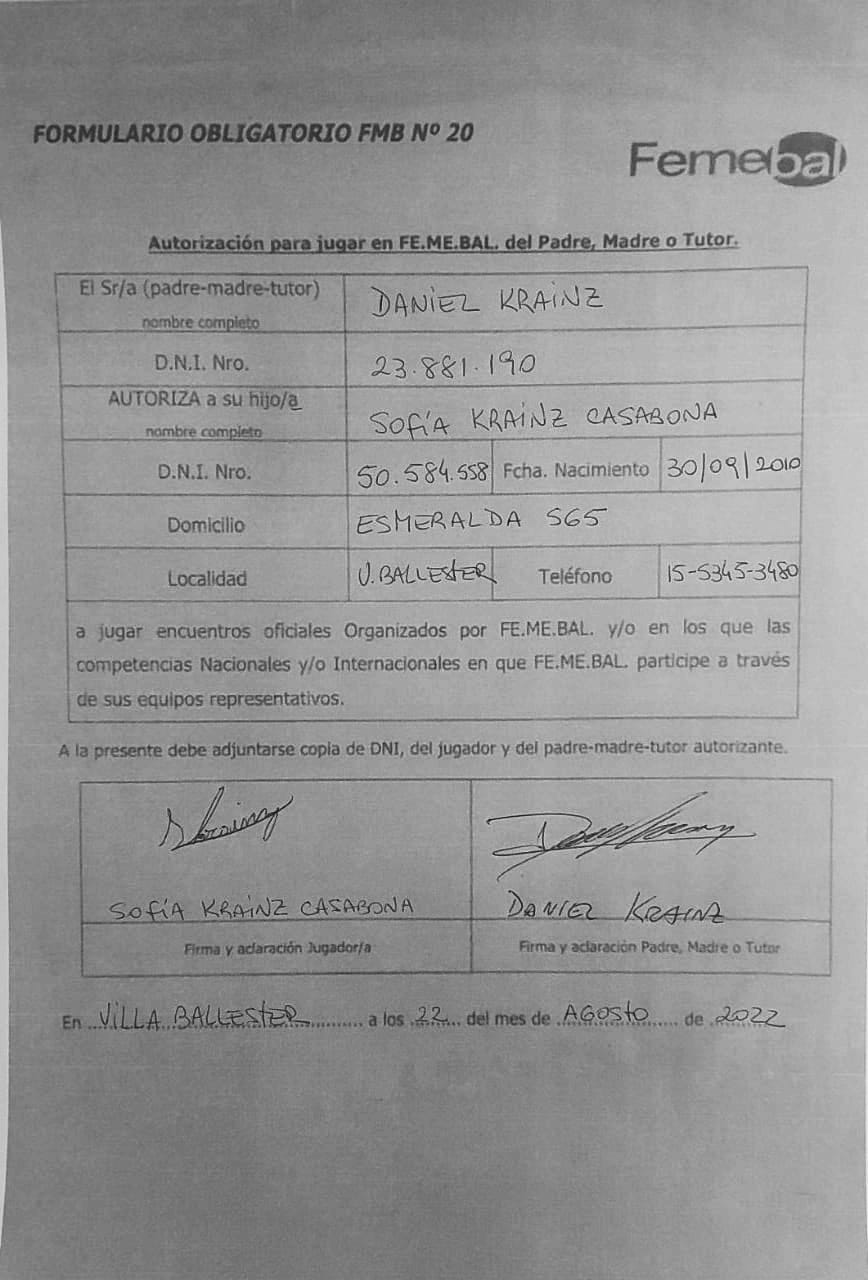 FORMULARIO OBLIGATORIO FMB Nº 20
Femebal
Autorización para jugar en FE.ME.BAL. del Padre, Madre o Tutor.
El Sr/a (padre-madre-tutor)
nombre completo
DANIEL KRAINZ
D.N.I. Nro.
23.881.190
AUTORIZA a su hijo/a
nombre completo
SOFÍA KRAINZ CASABONA
D.N.I. Nro.
50.584.558
Fcha. Nacimiento
30/09/2010
Domicilio
ESMERALDA 565
Localidad
V. BALLESTER
Teléfono
15-5345-3480
a jugar encuentros oficiales Organizados por FE.ME.BAL. y/o en los que las
competencias Nacionales y/o Internacionales en que FE.ME.BAL. participe a través
de sus equipos representativos.
A la presente debe adjuntarse copia de DNI, del jugador y del padre-madre-tutor autorizante.
SOFÍA KRAINZ CASABONA
DANIEL KRAINZ
Firma y aclaración Jugador/a
Firma y aclaración Padre, Madre o Tutor
En VILLA BALLESTER a los 22 del mes de AGOSTO de 2022